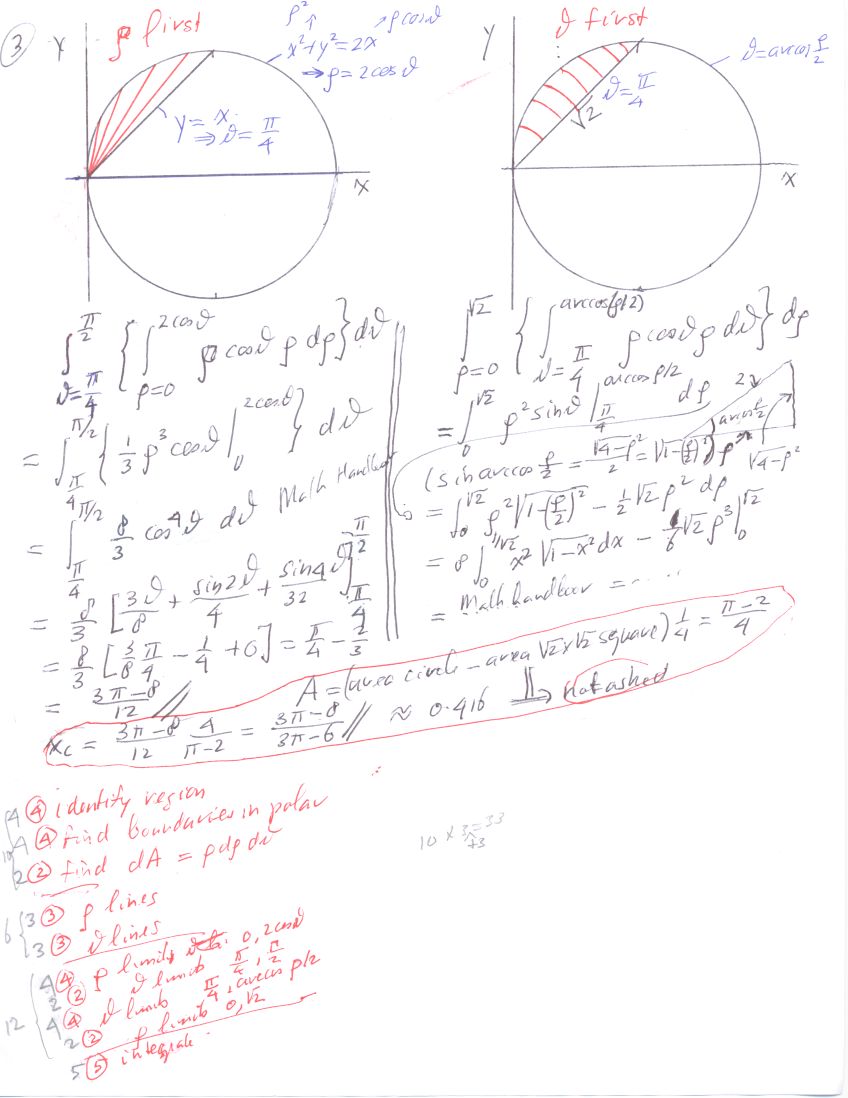 ③
ρ first
Y
ρ² ↑ ↗ρcosϑ
x²+y²=2x
⇒ρ=2cosϑ
y=x
⇒ϑ=π/4
X
ϑ first
Y
ϑ=arccos ρ/2
ϑ=π/4
√2
X
∫_{ϑ=π/4}^{π/2} { ∫_{ρ=0}^{2cosϑ} ρ cosϑ ρ dρ } dϑ
= ∫_{π/4}^{π/2} { 1/3 ρ³ cosϑ |_0^{2cosϑ} } dϑ
= ∫_{π/4}^{π/2} 8/3 cos⁴ϑ dϑ Math Handboor
= 8/3 [ 3ϑ/8 + sin2ϑ/4 + sin4ϑ/32 ]_{π/4}^{π/2}
= 8/3 [ 3/8 π/4 − 1/4 + 0 ] = π/4 − 2/3
= 3π−8/12 //
∫_{ρ=0}^{√2} { ∫_{ϑ=π/4}^{arccos(ρ/2)} ρcosϑ ρ dϑ } dρ
= ∫_0^{√2} ρ² sinϑ |_{π/4}^{arccos ρ/2} dρ
2
arccos ρ/2
√4−ρ²
(sin arccos ρ/2 = √4−ρ²/2 = √1−(ρ/2)²)
= ∫_0^{√2} ρ² √1−(ρ/2)² − 1/2 √2 ρ² dρ
= 8 ∫_0^{1/√2} x² √1−x² dx − 1/6 √2 ρ³ |_0^{√2}
= Math handboor = .....
A = (area circle − area √2×√2 square) 1/4 = π−2/4
x_c = 3π−8/12 4/π−2 = 3π−8/3π−6 // ≈ 0.416 ⇒ Not asked
4 ④ identify region
4 ④ find boundaries in polar
10
2 ② find dA = ρdρdϑ
10 × 3 = 33
+3
3 ③ ρ lines
6
3 ③ ϑ lines
4 ④ ρ limits 0, 2cosϑ
2 ② ϑ limits π/4, π/2
12
4 ④ ϑ limits π/4, arccos ρ/2
2 ② ρ limits 0, √2
5 ⑤ integrate